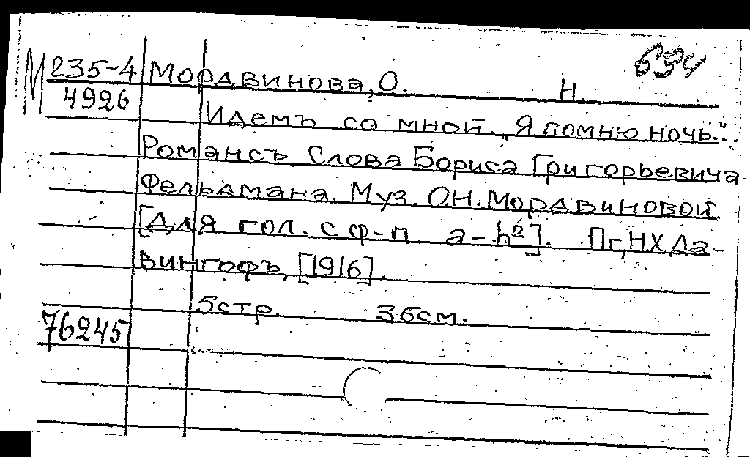 694
М 235-4 Мордвинова, О. Н.
4926
Идемъ со мной. „Я помню ночь."
Романсъ. Слова Бориса Григорьевича
Фельдмана. Муз. О.Н. Мордвиновой
[Для гол. с ф-п a-h²]. Пг, НХ Да-
вингофъ, [1916].
5стр. 36см.
76245